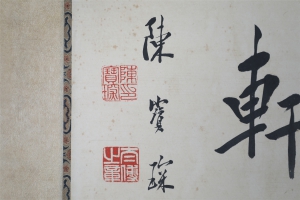 軒
陳寶琛
陳印寶琛
太傅之章